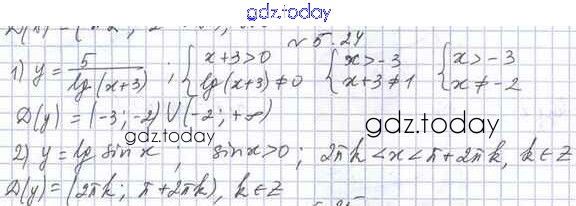 gdz.today
№ 5.24
1) y = 5 / lg(x+3) ; { x+3>0 { x>-3 { x>-3
lg(x+3)≠0 x+3≠1 x≠-2
D(y) = (-3; -2)∪(-2; +∞)
gdz.today
gdz.today
2) y = lg sin x, sin x>0; 2πk<x<π+2πk, k∈Z
D(y) = (2πk; π+2πk), k∈Z